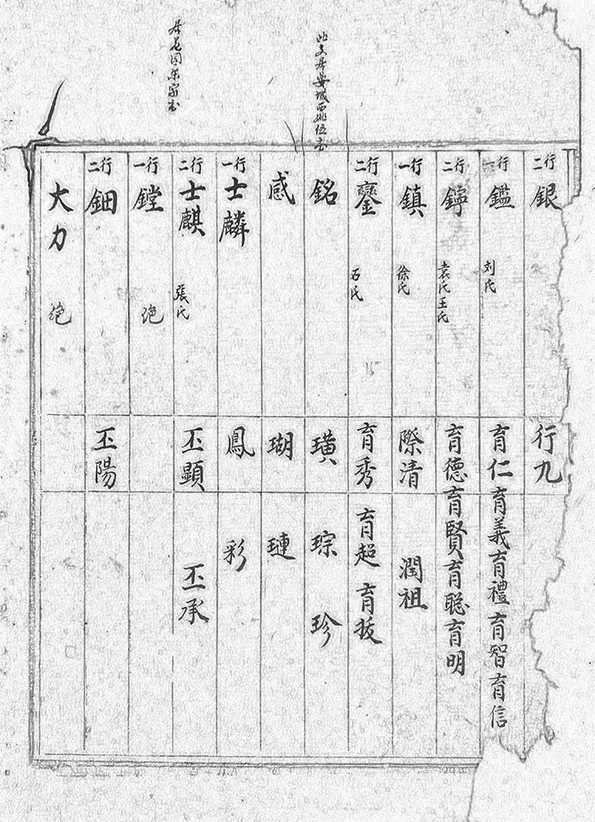 此支居安城西
銀 行二
行九
鑑 行一 刘氏
育仁 育義 育禮 育智 育信
錚 行二 袁氏 王氏
育德 育賢 育聪 育明
鎮 行一 徐氏
際清 潤祖
鑾 行二 石氏
育秀 育超 育拔
銘
璜 琮 珍
感
瑚 璉
士麟 行一
鳳 彩
士麒 行二 張氏
丕顯 丕承
鏜 行一 绝
鈿 行二
丕陽
大力 绝